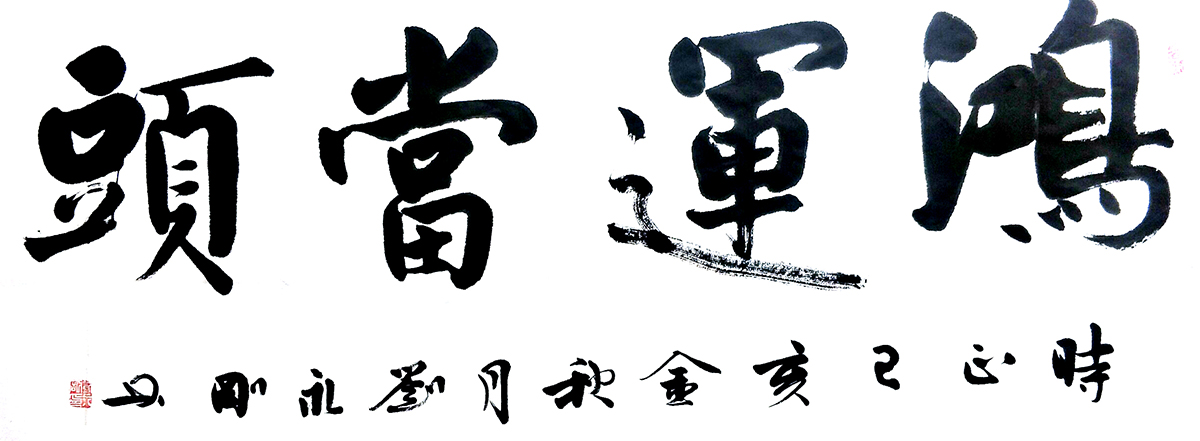 鴻運當頭
時正己亥金秋月劉永剛书